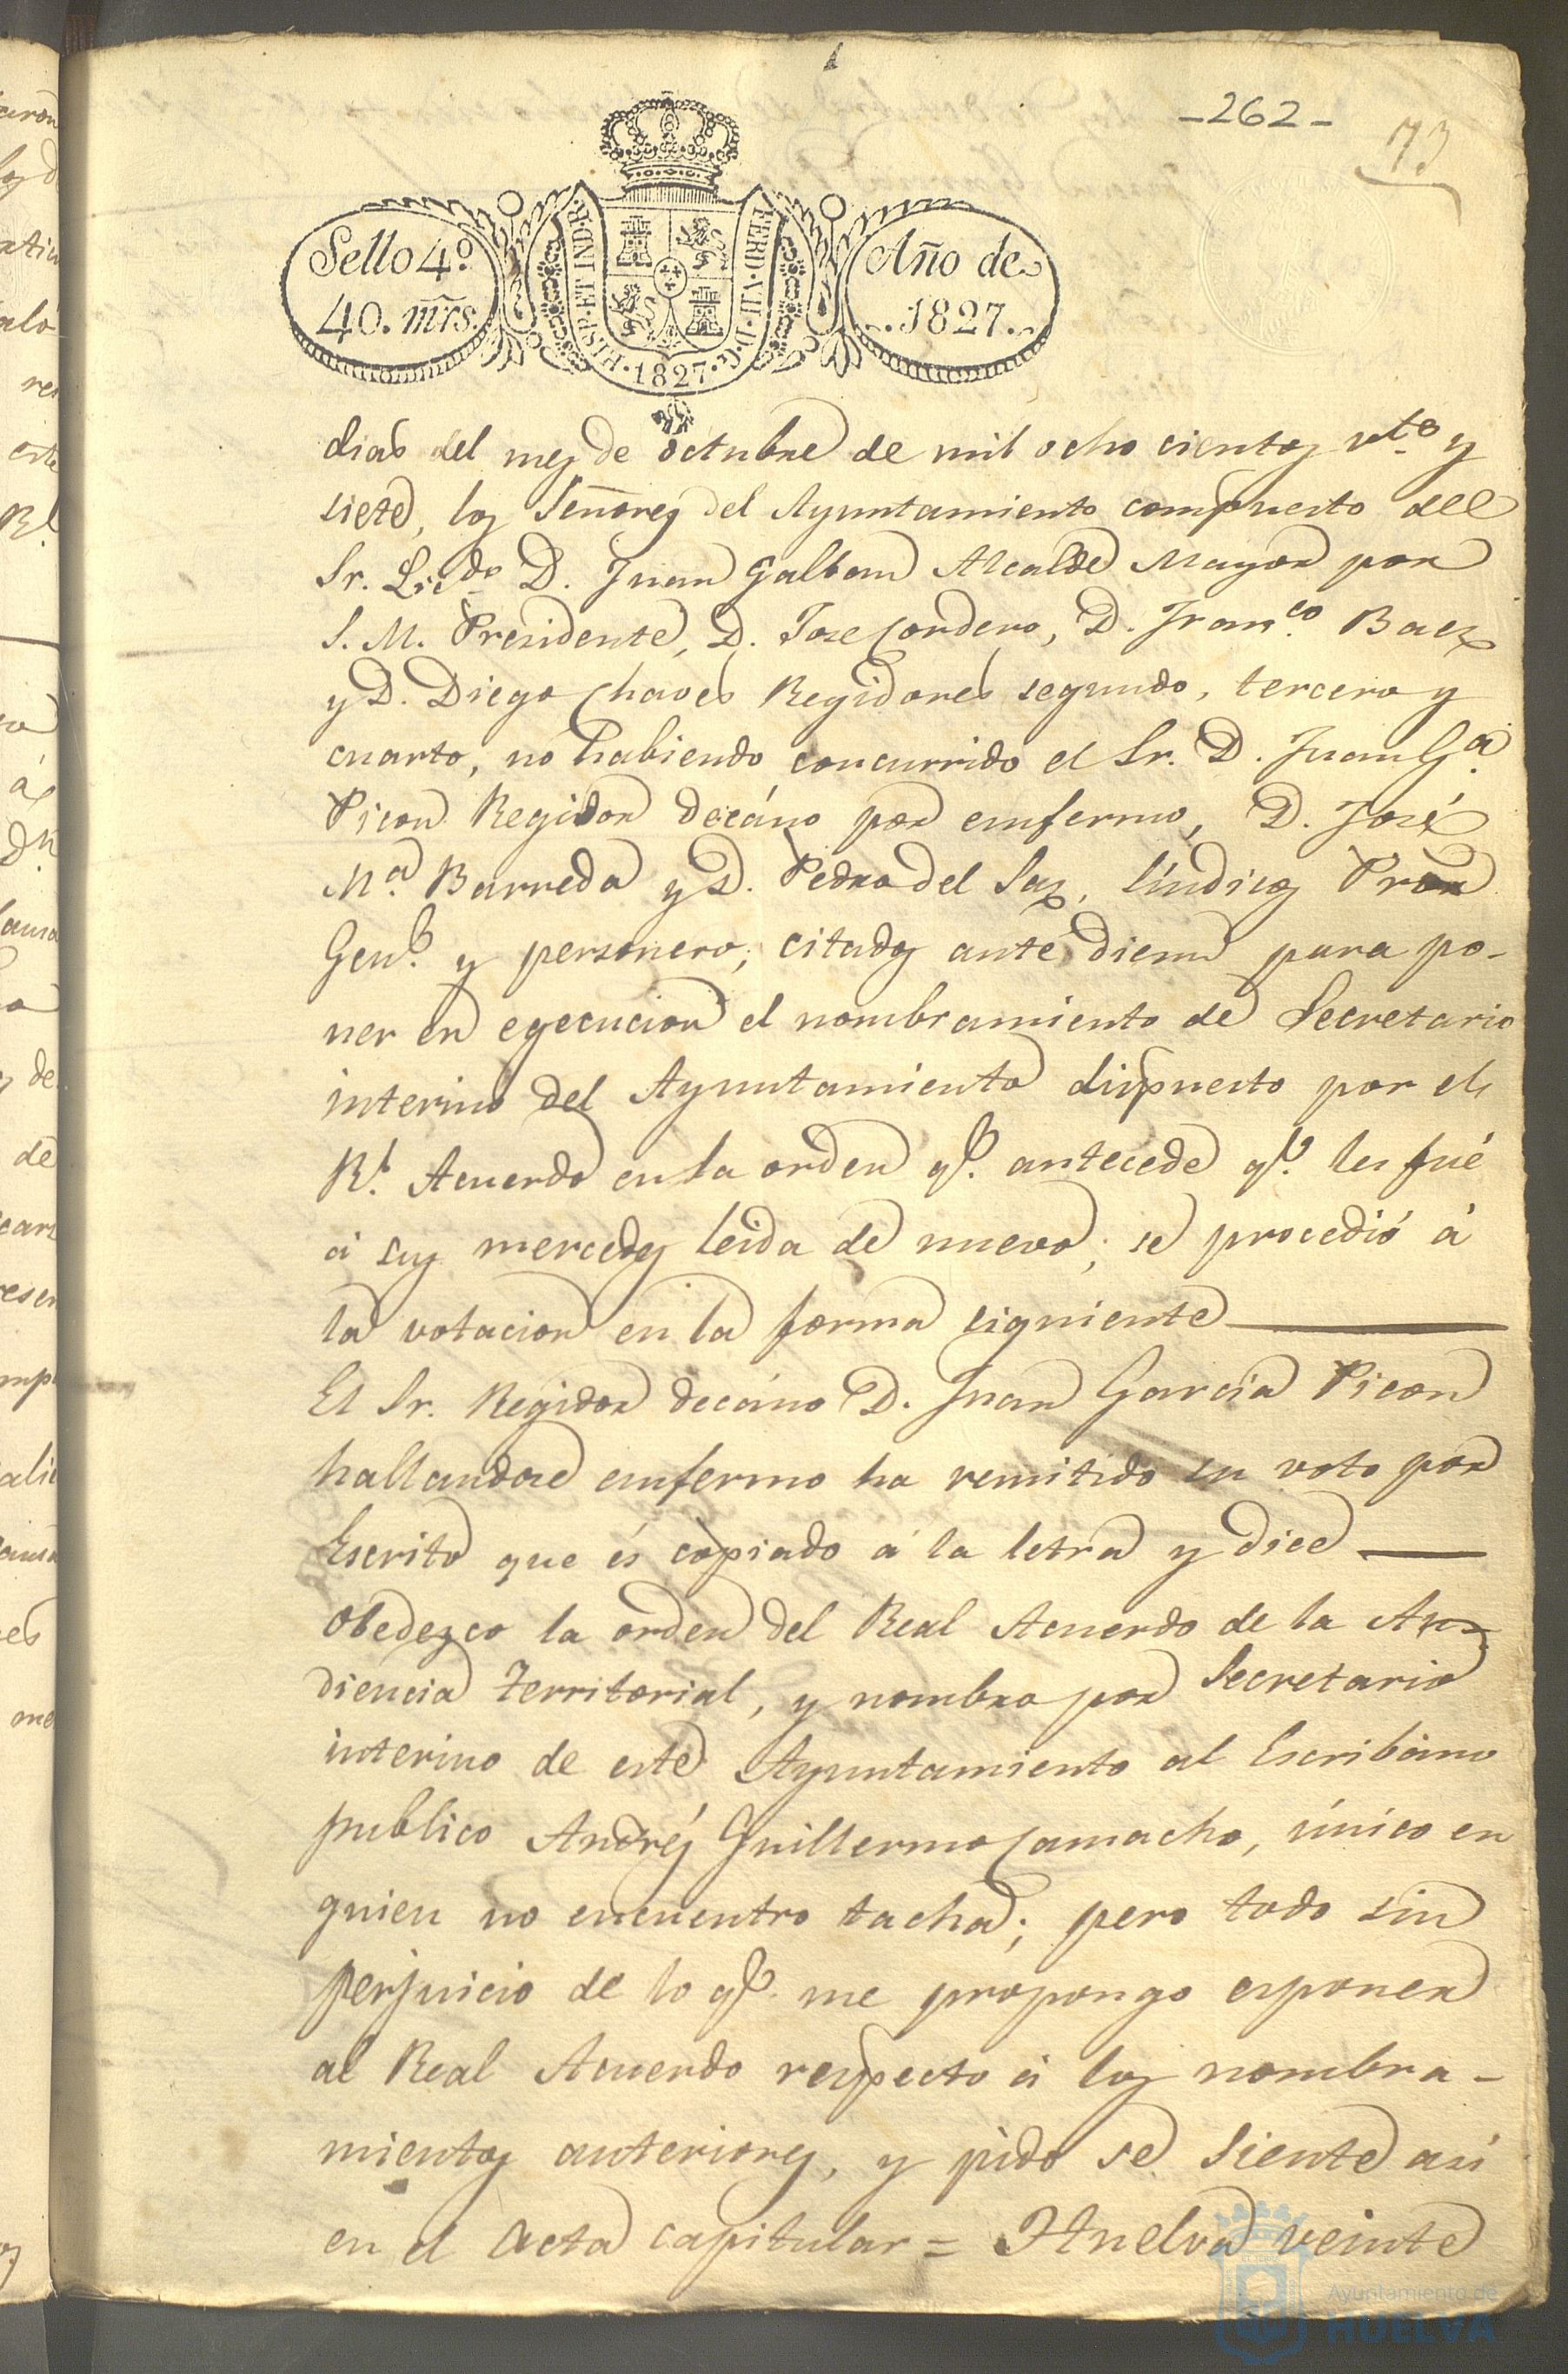 -262-
73
Sello 4º
40. mrs.
HISP. ET IND. R.
FERD. VII. D. G.
1827
Año de
1827.
dias del mes de octubre de mil ocho cientos vte. y
siete, los Señores del Ayuntamiento compuesto del
Sr. Licdo. D. Juan Galban Alcalde Mayor por
S. M. Presidente, D. Jose Cordero, D. Franco. Baez
y D. Diego Chaves Regidores segundo, tercero y
cuarto, no habiendo concurrido el Sr. D. Juan Ga.
Picon Regidor decáno por emfermo, D. José
Ma. Barreda y D. Pedro del Saz, Síndicos Pror
Genl. y personero; citados ante diem para po-
ner en egecucion el nombramiento de Secretario
interino del Ayuntamiento dispuesto por el
Rl. Acuerdo en la orden qe. antecede qe. les fué
á sus mercedes leida de nuevo; se procedió á
la votacion en la forma siguiente
El Sr. Regidor decáno D. Juan Garcia Picon
hallandose emfermo ha remitido su voto por
Escrito que és copiado á la letra y dice
Obedezco la orden del Real Acuerdo de la Au-
diencia Territorial, y nombro por Secretario
interino de este Ayuntamiento al Escribáno
publico Andrés Guillermo Camacho, único en
quien no encuentro tacha; pero todo sin
perjuicio de lo qe. me propongo esponer
al Real Acuerdo respecto á los nombra-
mientos anteriores, y pido se siente asi
en el acta capitular = Huelva veinte
Ayuntamiento de
HUELVA